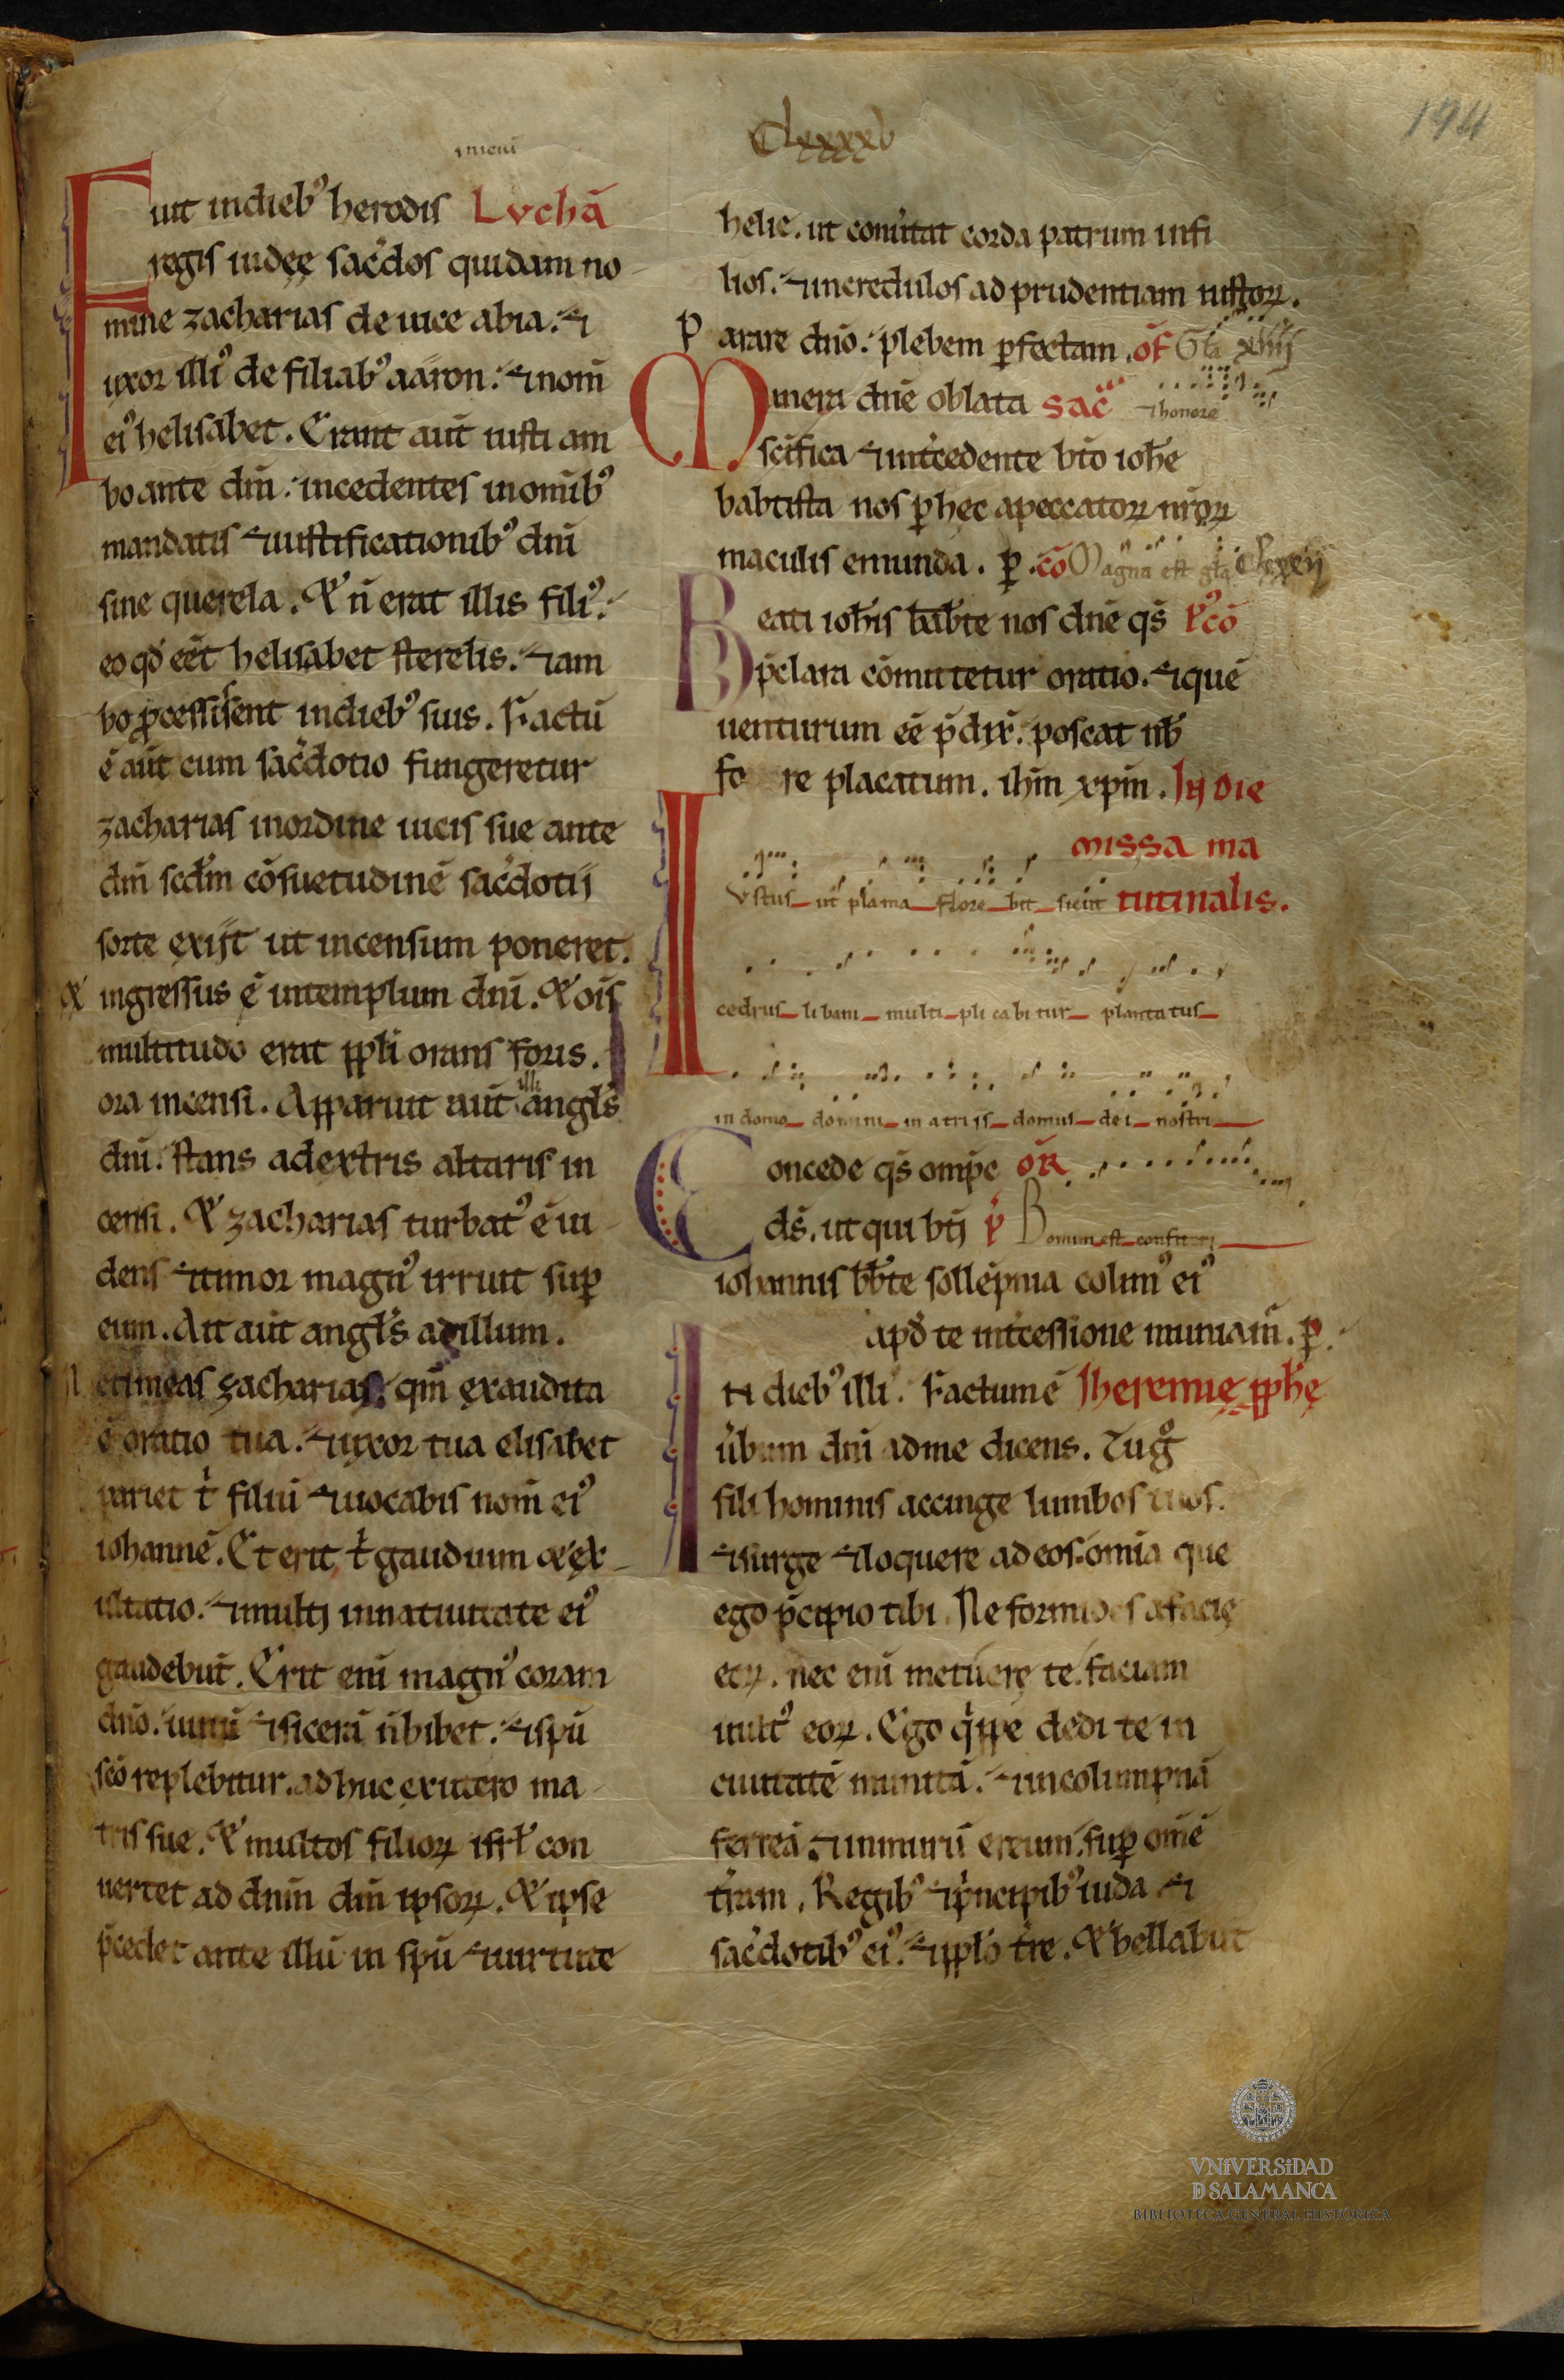 Clxxxv
194
Fuit in dieb⁹ herodis Luchā
regis iudęę sac̄dos quidam no
mine zacharias de uice abia. ⁊
uxor illi⁹ de filiab⁹ aaron. ⁊ nom̄
ei⁹ helisabet. Erant aut̄ iusti am
bo ante dm̄. incedentes in omīb⁹
mandatis ⁊ iustificationib⁹ dnī
sine querela. & n̄ erat illis fili⁹.
eo qđ eēt helisabet sterelis. ⁊ am
bo p̄cessissent in dieb⁹ suis. Factū
ē aūt cum sac̄dotio fungeretur
zacharias in ordine uicis sue ante
dm̄ scd̄m cōsuetudinē sac̄dotij
sorte exijt ut incensum poneret.
& ingressus ē in templum dnī. & oīs
multitudo erat ppl̄i orans foris.
ora incensi. Apparuit aūt illi angl̄s
dnī. stans a dextris altaris in
censi. & zacharias turbat⁹ ē ui
dens ⁊ timor magn⁹ irruit sup̄
eum. Ait aūt angl̄s ad illum.
Ne timeas zacharias. qm̄ exaudita
ē oratio tua. ⁊ uxor tua elisabet
pariet t̄ filiū ⁊ uocabis nom̄ ei⁹
iohannē. Et erit t̄ gaudium & ex
ultatio. ⁊ multj in natiuitate ei⁹
gaudebūt. Erit enī magn⁹ coram
dnō. uinū ⁊ sicerā n̄ bibet. ⁊ spū
scō replebitur. adhuc ex utero ma
tris sue. & multos filioꝝ isrl̄ con
uertet ad dnm̄ dm̄ ipsoꝝ. & ipse
p̄cedet ante illū in spū ⁊ uirtute
helie. ut conūtat corda patrum in fi
lios. ⁊ incredulos ad prudentiam iustoꝝ.
Parare dnō. plebem p̄fectam. of̄ Gl̄a xiiij
Munera dnē oblata sac̄ ⁊ honore
scifica ⁊ int̄cedente bto ioh̄e
babtista nos p̄ hęc a peccatoꝝ nr̄oꝝ
maculis emunda. p̄. cō Magna est gl̄a
Beati ioh̄is bab̄te nos dnē qs̄ p⁹cō
p̄clara comitetur oratio. ⁊ quē
uenturum eē p̄dix̄. poscat nob̄
fo re placatum. ih̄m xp̄m. In die
missa ma
Iustus ut plama flore bit sicut tutinalis.
cedrus libani multi pli cabi tur plantatus
in domo domini in atriis domus de i nostri
Concede qs̄ omp̄e oR̄
ds̄. ut qui btj ṗ Bonum est confiteri
iohannis bb̄te sollēpnia colim⁹ ei⁹
apđ te int̄cessione muniam̄. p̄.
In dieb⁹ illi⁹. Factum ē Iheremię pph̄ę
ūbum dnī ad me dicens. Tu g̊
fili hominis accinge lumbos tuos.
⁊ surge ⁊ loquere ad eos omīa que
ego p̄cipio tibi. Ne formides a facię
eoꝝ. nec enī metuerę te faciam
uult⁹ eoꝝ. Ego q̄ppe dedi te in
ciuitatē munitā. ⁊ in columpnā
ferreā. ⁊ in murū ereum. sup̄ omē
t̄ram. Regib⁹ ⁊ p̄ncipib⁹ iuda ⁊
sac̄dotib⁹ ei⁹. ⁊ ppl̄o t̄re. & bellabūt
VNiVERSiDAD
D SALAMANCA
BIBLIOTECA GENERAL HISTÓRICA